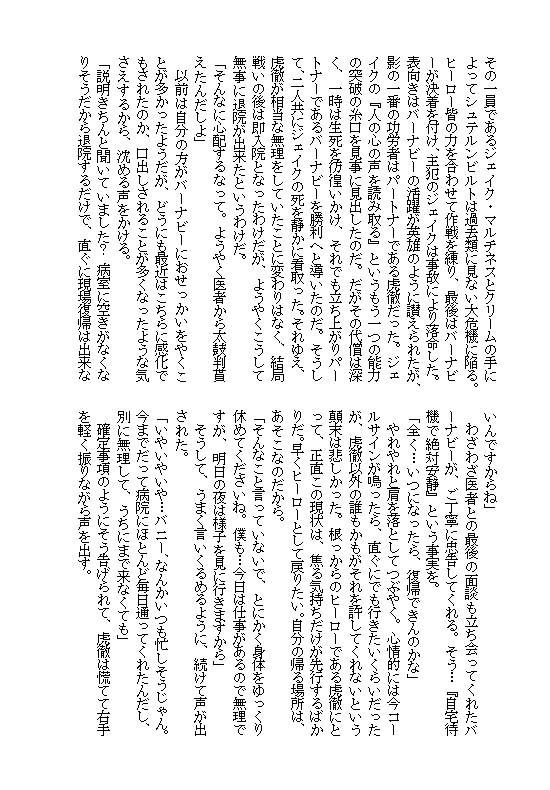 その一員であるジェイク・マルチネスとクリームの手に
よってシュテルンビルトは過去類に見ない大危機に陥る。
ヒーロー皆の力を合わせて作戦を練り、最後はバーナビ
ーが決着を付け、主犯のジェイクは事故により落命した。
表向きはバーナビーの活躍が英雄のように讃えられたが、
影の一番の功労者はパートナーである虎徹だった。ジェ
イクの『人の心の声を読み取る』というもう一つの能力
の突破の糸口を見事に見出したのだ。だがその代償は深
く、一時は生死を彷徨いかけ、それでも立ち上がりパー
トナーであるバーナビーを勝利へと導いたのだ。そうし
て、二人共にジェイクの死を静かに看取った。それゆえ、
虎徹が相当な無理をしていたことに変わりはなく、結局
戦いの後は即入院となったわけだが、ようやくこうして
無事に退院が出来たというわけだ。
「そんなに心配するなって。ようやく医者から太鼓判貰
えたんだしよ」
　以前は自分の方がバーナビーにおせっかいをやくこ
とが多かったようだが、どうにも最近はこちらに感化で
もされたのか、口出しされることが多くなったような気
さえするから、沈める声をかける。
「説明きちんと聞いていました？　病室に空きがなくな
りそうだから退院するだけで、直ぐに現場復帰は出来な
いんですからね」
　わざわざ医者との最後の面談も立ち会ってくれたバ
ーナビーが、ご丁寧に忠告してくれる。そう…『自宅待
機で絶対安静』という事実を。
「全く…いつになったら、復帰できんのかな」
　やれやれと肩を落としてつぶやく。心情的には今コー
ルサインが鳴ったら、直ぐにでも行きたいくらいだった
が、虎徹以外の誰もかもがそれを許してくれないという
顛末は悲しかった。根っからのヒーローである虎徹にと
って、正直この現状は、焦る気持ちだけが先行するばか
りだ。早くヒーローとして戻りたい。自分の帰る場所は、
あそこなのだから。
「そんなこと言っていないで、とにかく身体をゆっくり
休めてくださいね。僕も…今日は仕事があるので無理で
すが、明日の夜は様子を見に行きますから」
　そうして、うまく言いくるめるように、続けて声が出
された。
「いやいやいや…バニー、なんかいつも忙しそうじゃん。
今までだって病院にほとんど毎日通ってくれたんだし、
別に無理して、うちにまで来なくても」
　確定事項のようにそう告げられて、虎徹は慌てて右手
を軽く振りながら声を出す。